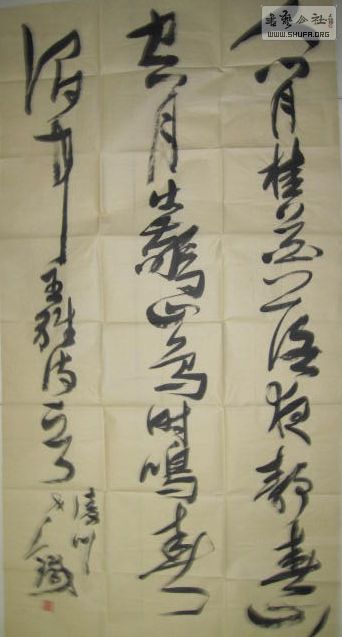 书艺公社
WWW.SHUFA.ORG
人閒桂花落夜静春山
空月出驚山鳥时鳴春
涧中 王維诗